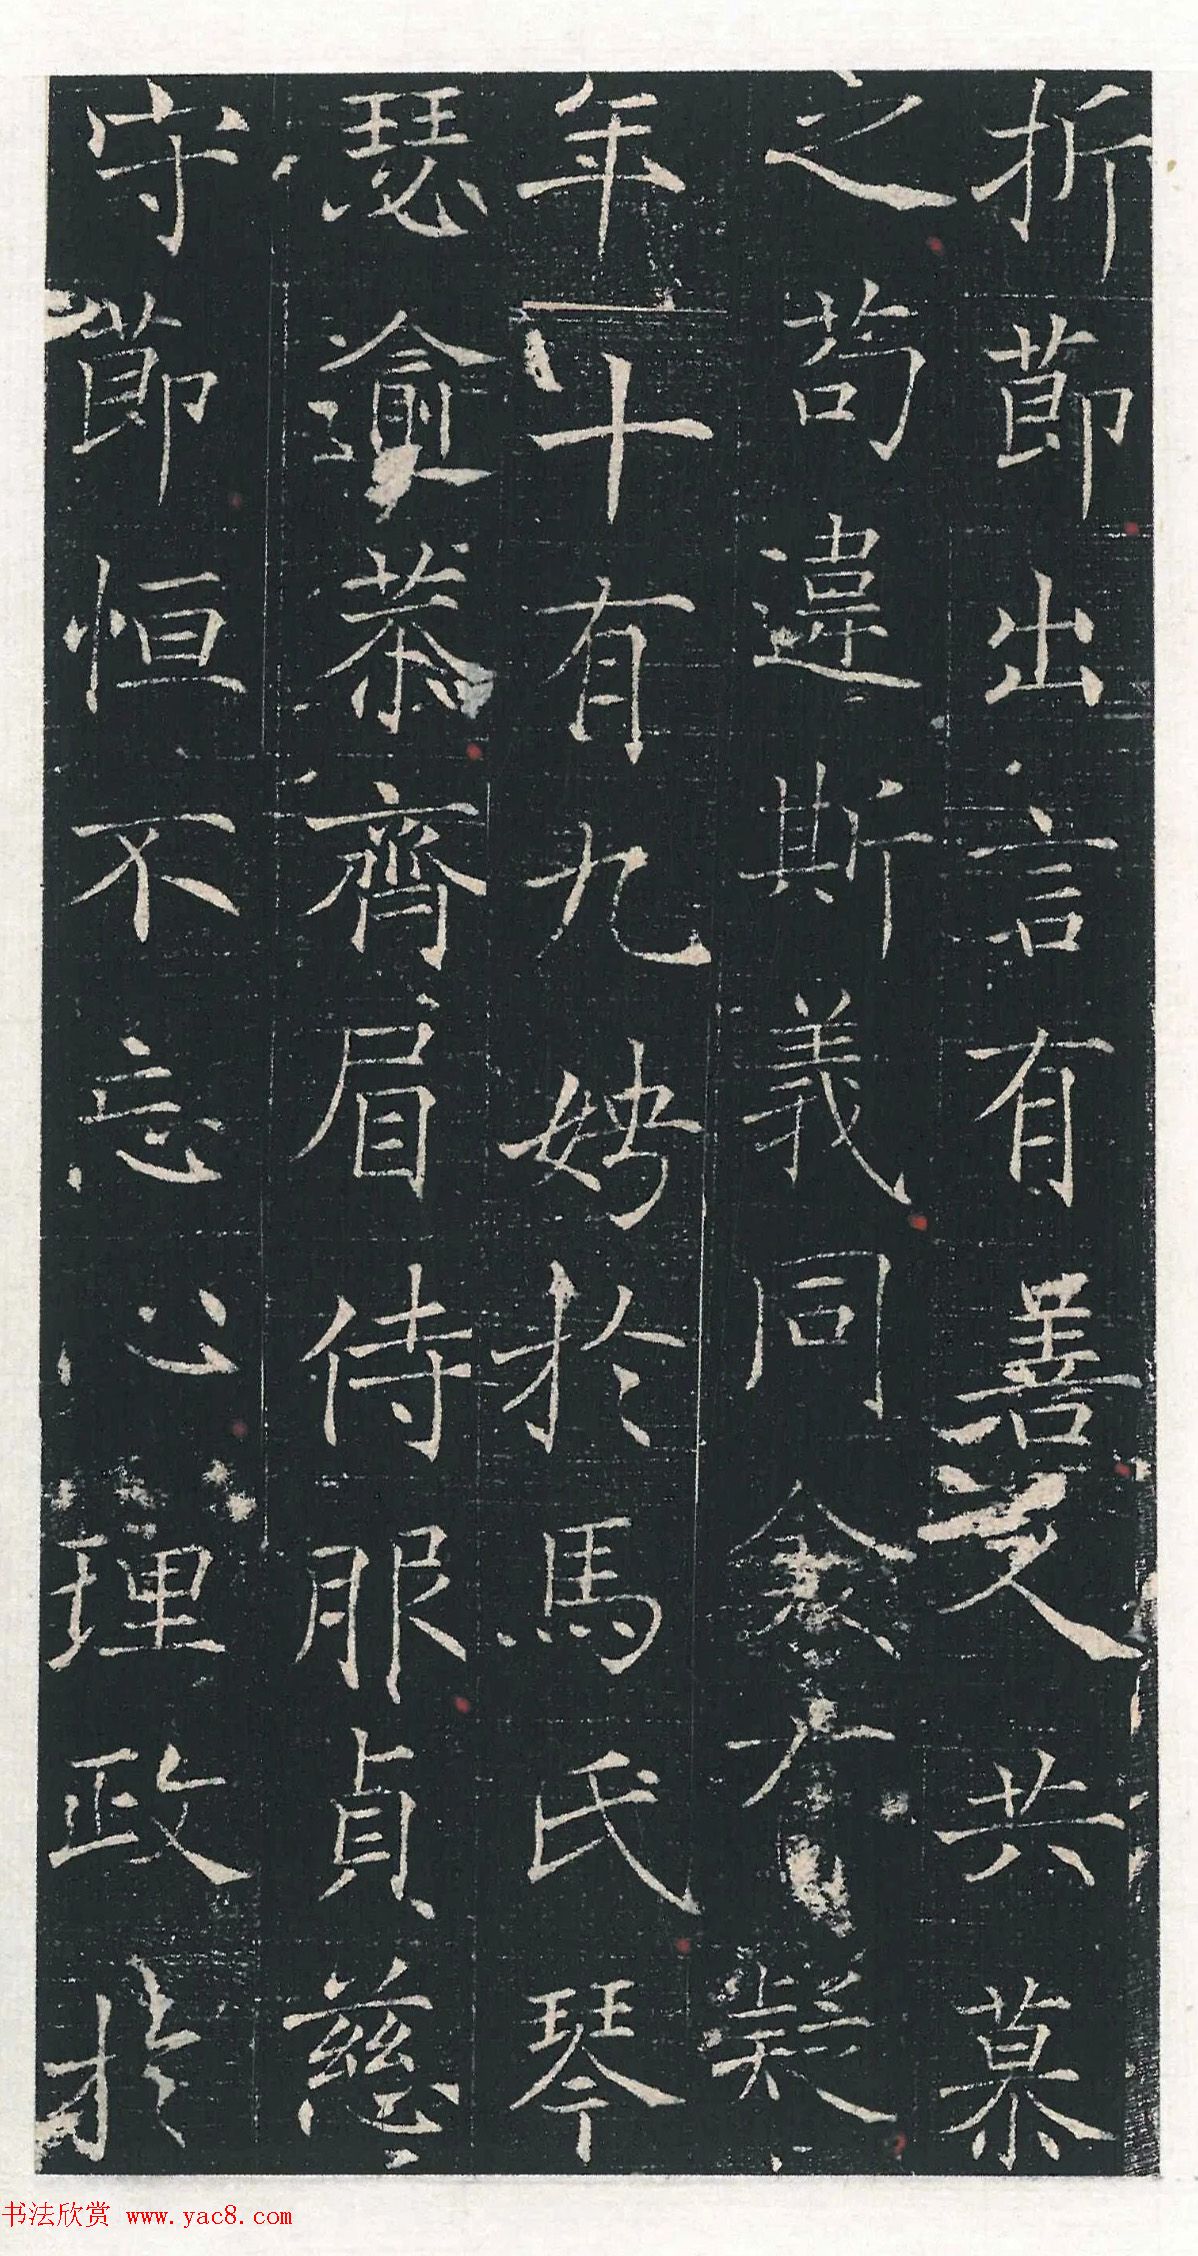 折節出言有善父共慕
之苟違斯義同食不凝
年十有九娉於馬氏琴
瑟逾恭齊眉侍服貞慈
守節恒不忘心理政於
书法欣赏 www.yac8.com